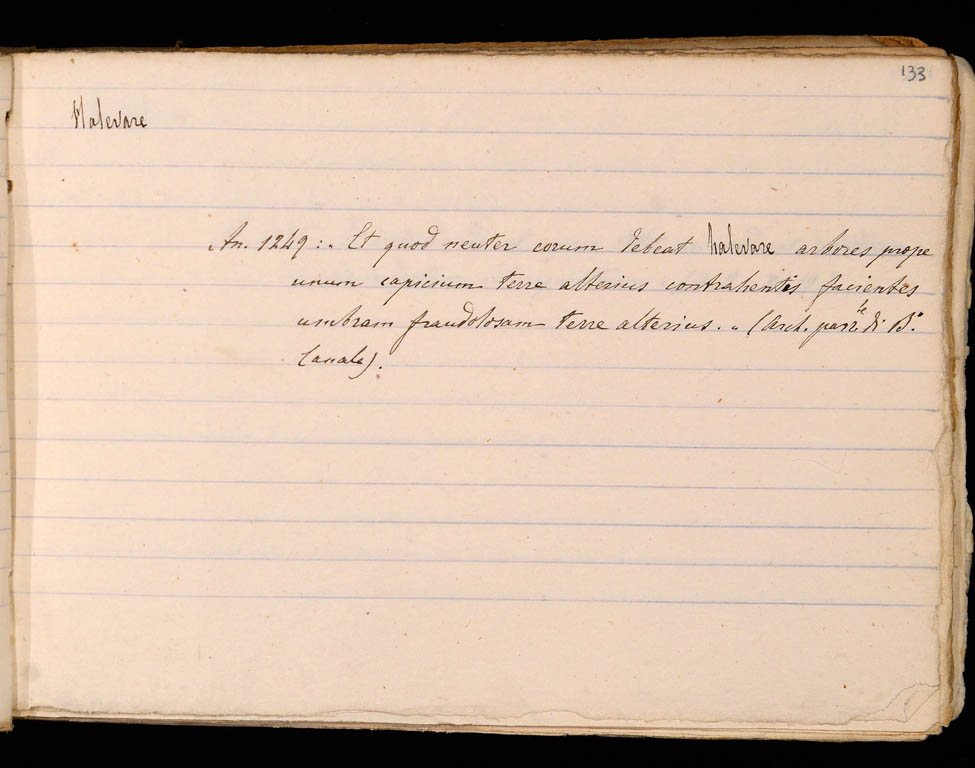 133
Halevare
An. 1249 : „ Et quod neuter eorum debeat halevare arbores prope
unum capicium terre alterius contrahentis facientes
umbram fraudolosam terre alterius. „ (Arch. parr.le di B.o
Canale).